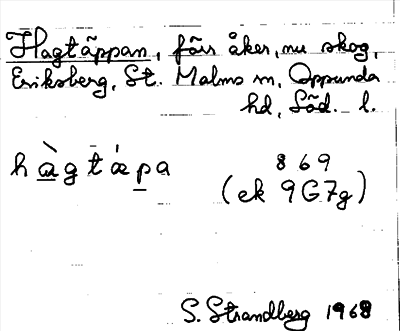 Hagtäppan, förr åker, nu skog,
Eriksberg, St. Malms sn, Oppunda
hd, Söd. l.
hàgtǽpa
8 6 9
(ek 9G7g)
S. Strandberg 1968